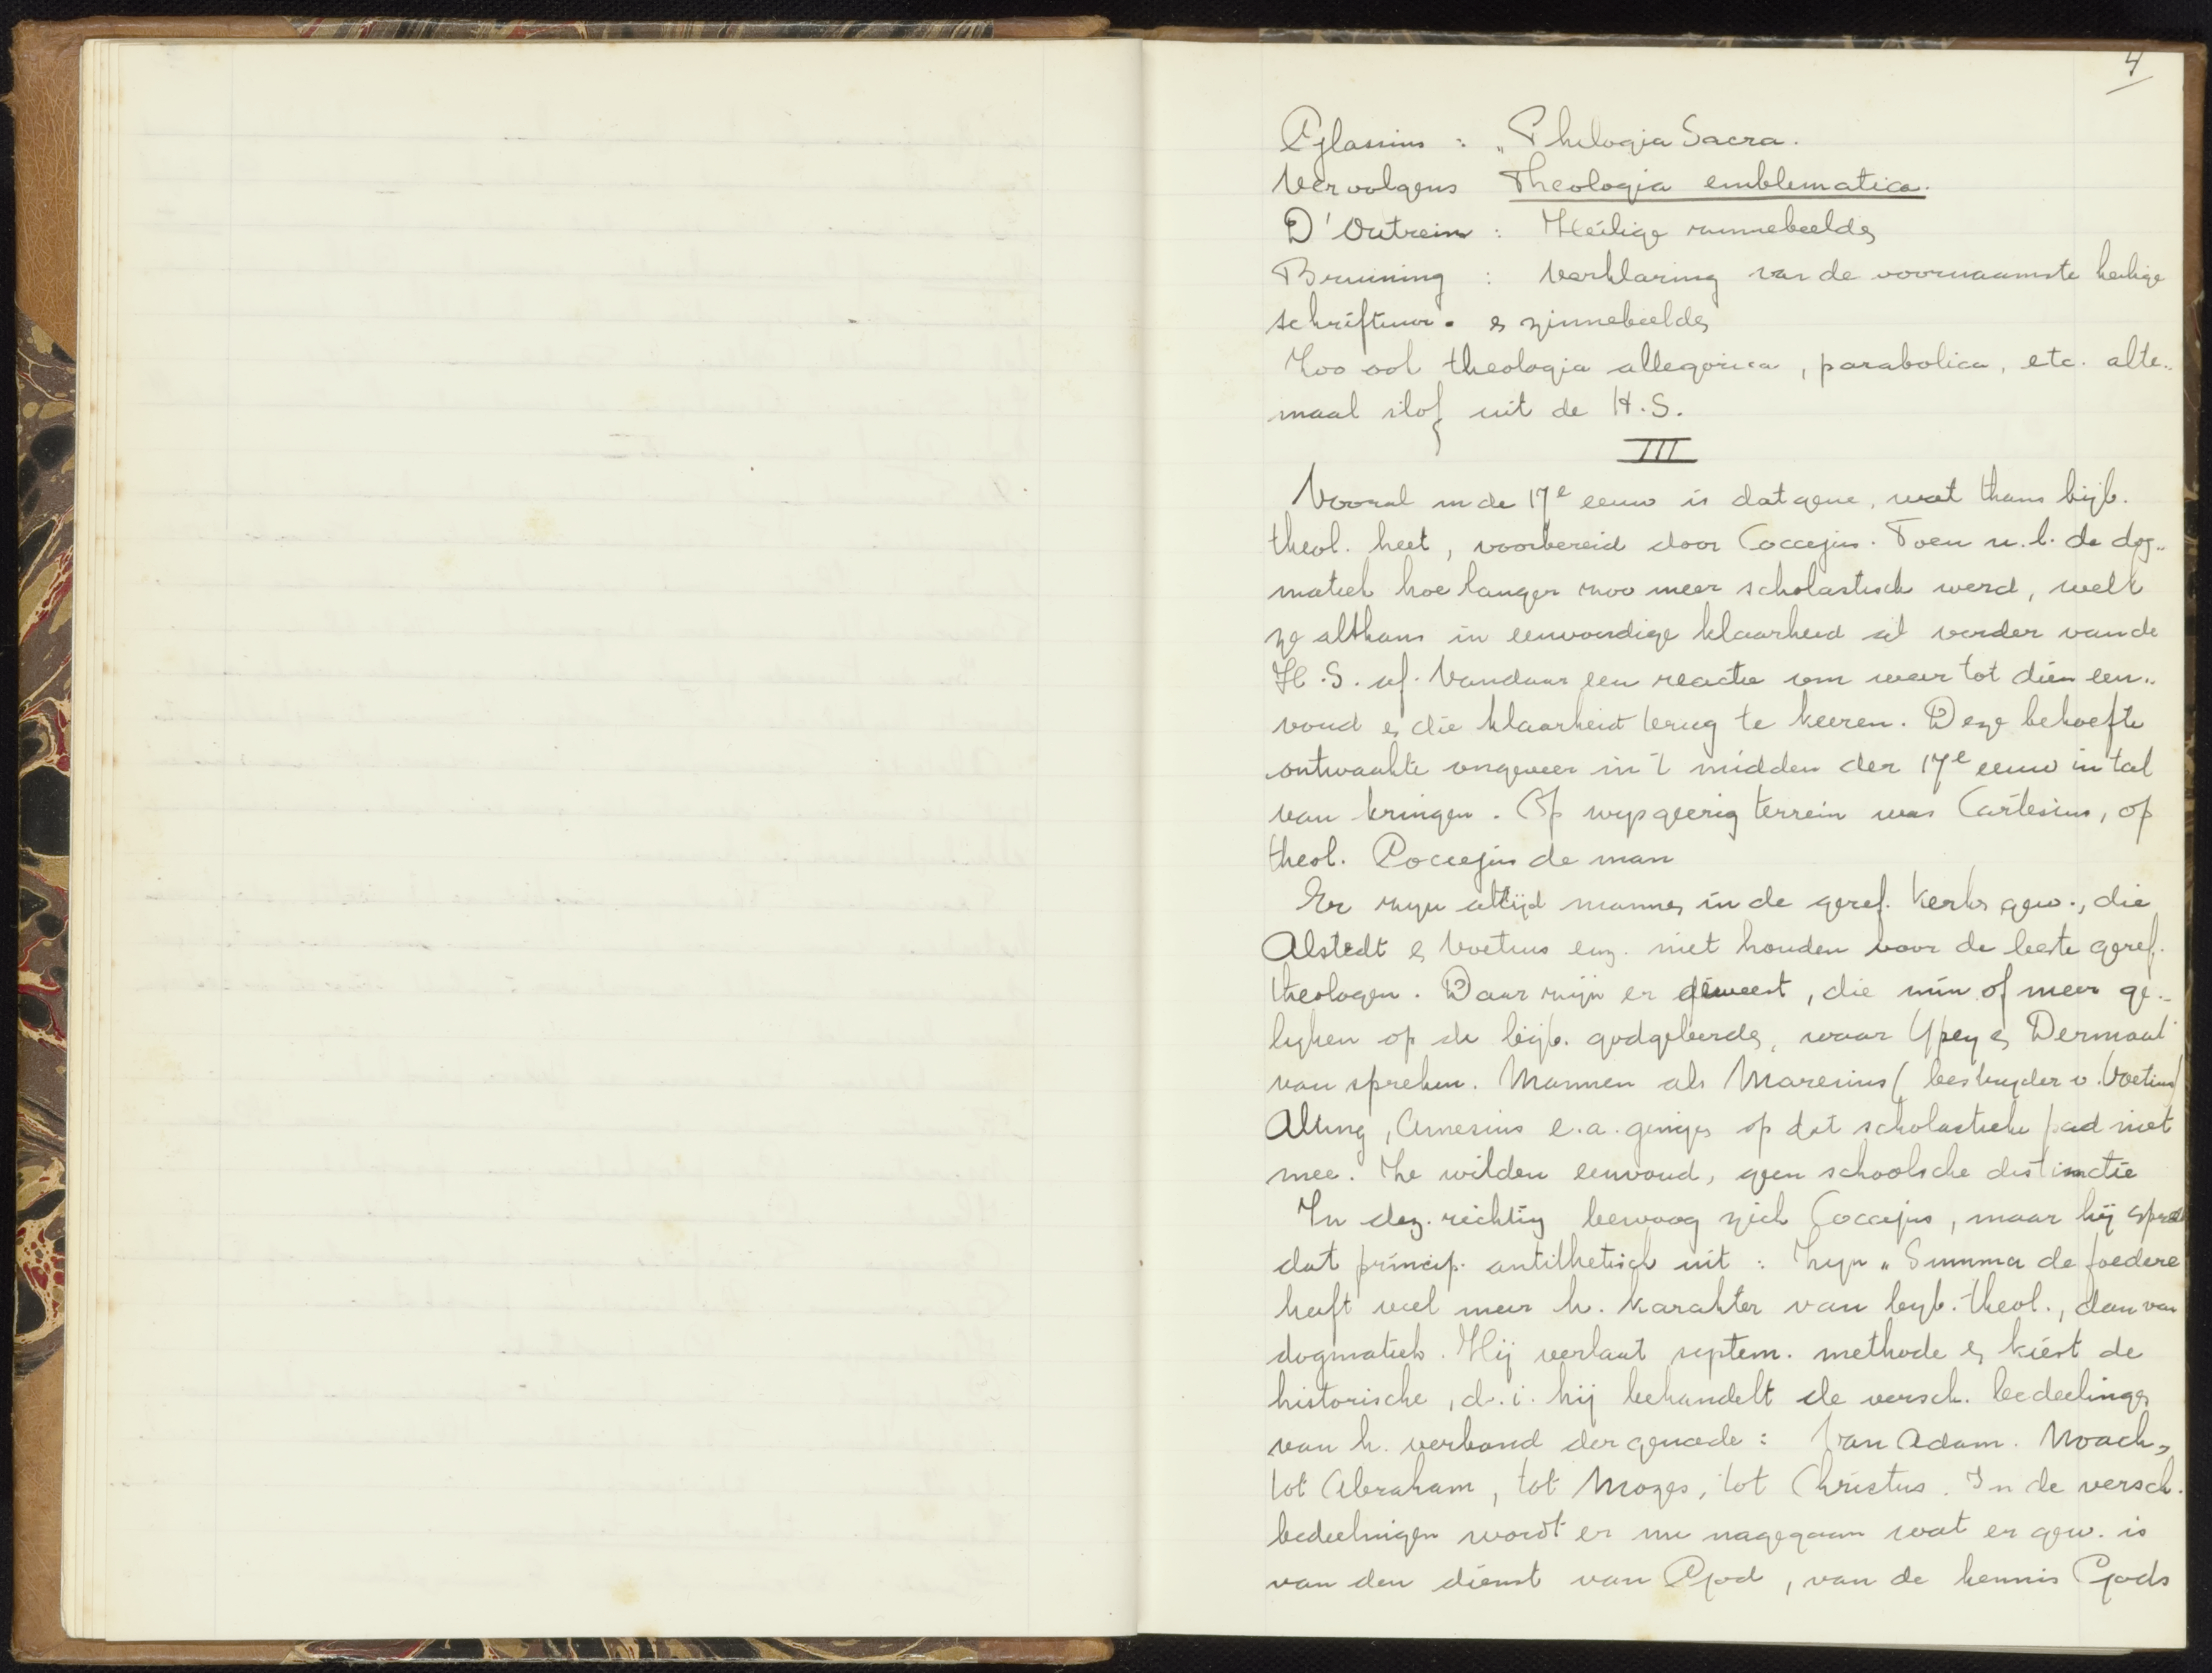 4
Glassius : „Philogia Sacra.
Vervolgens Theologia emblematica.
D'Outrein : Heilige zinnebeelds
Bruining : Verklaring van de voornaamste heilige
schriftuur. & zinnebeelds
Zoo ook theologia allegorica, parabolica, etc. alte„
maal stof uit de H.S.
III
Vooral in de 17e eeuw is datgene, wat thans bijb.
theol. heet, voorbereid door Coccejus. Toen n.l. de dog„
matiek hoe langer zoo meer scholastisch werd, welk
ze althans in eenvoudige klaarheid al verder van de
H.S. af. Vandaar een reactie om weer tot dien een„
voud & die klaarheid terug te keeren. Deze behoefte
ontwaakte ongeveer in 't midden der 17e eeuw in tal
van kringen. Op wijsgeerig terrein was Cartesius, op
theol. Coccejus de man
Er zijn altijd mannen in de geref. kerk gew., die
Alstedt & Voetius enz. niet houden voor de beste geref.
theologen. Daar zijn er geweest, die min of meer ge„
lijken op de bijb. godgeleerds, waar Ypey & Dermout
van spreken. Mannen als Maresius (bestrijder v. Voetius)
Alting, Amesius e.a. gingen op dat scholastieke pad niet
mee. Ze wilden eenvoud, geen schoolsche distinctie
In dez. richting bewoog zich Coccejus, maar hij sprak
dat princip. antithetisch uit : Zijn „Summa de foedere
heeft veel meer h. karakter van bijb. theol., dan van
dogmatiek. Hij verlaat system. methode & kiest de
historische, d.i. hij behandelt de versch. bedeelings
van h. verbond der genade : Van Adam. Noach,
tot Abraham, tot Mozes, tot Christus. In de versch.
bedeelingen wordt er nu nagegaan wat er gew. is
van den dienst van God, van de kennis Gods